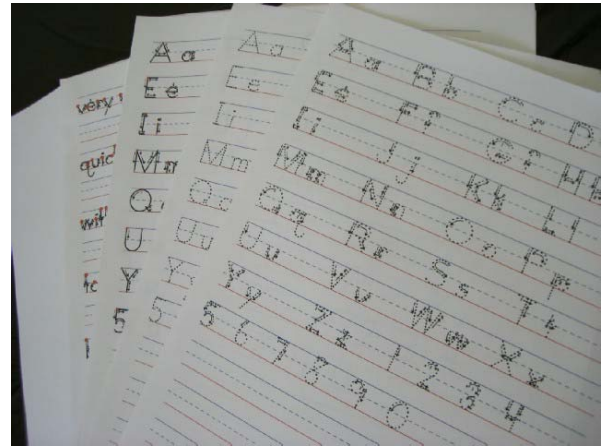 very
quic
will
Aa
Ee
Ii
Mm
Q
U
Y
5
Aa
Ee
Ii
Mm
Qq
Uu
Y
5
Aa Bb Cc D
Ee Ff Gg Hh
Ii Jj Kk Ll
Mm Nn Oo Pp
Qq Rr Ss Tt
Uu Vv Ww Xx
Yy Zz 1 2 3 4
5 6 7 8 9 0